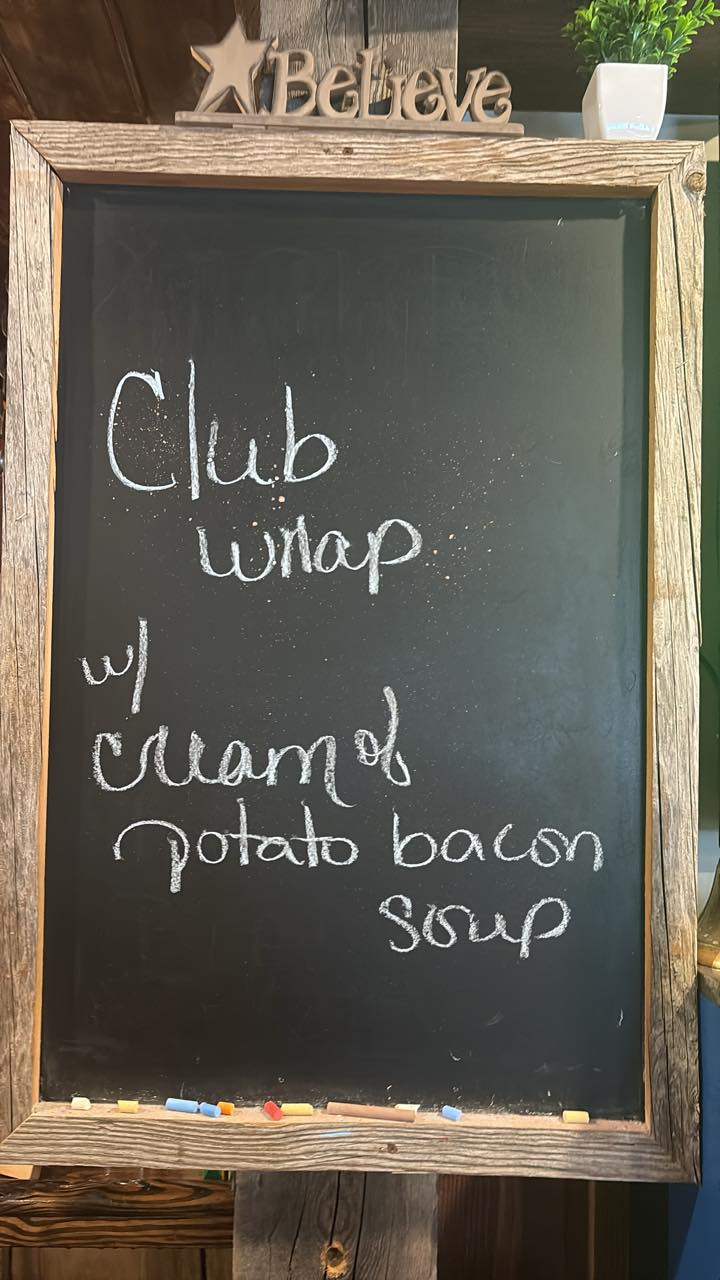 Believe
Club
wrap
w/
cream of
potato bacon
soup